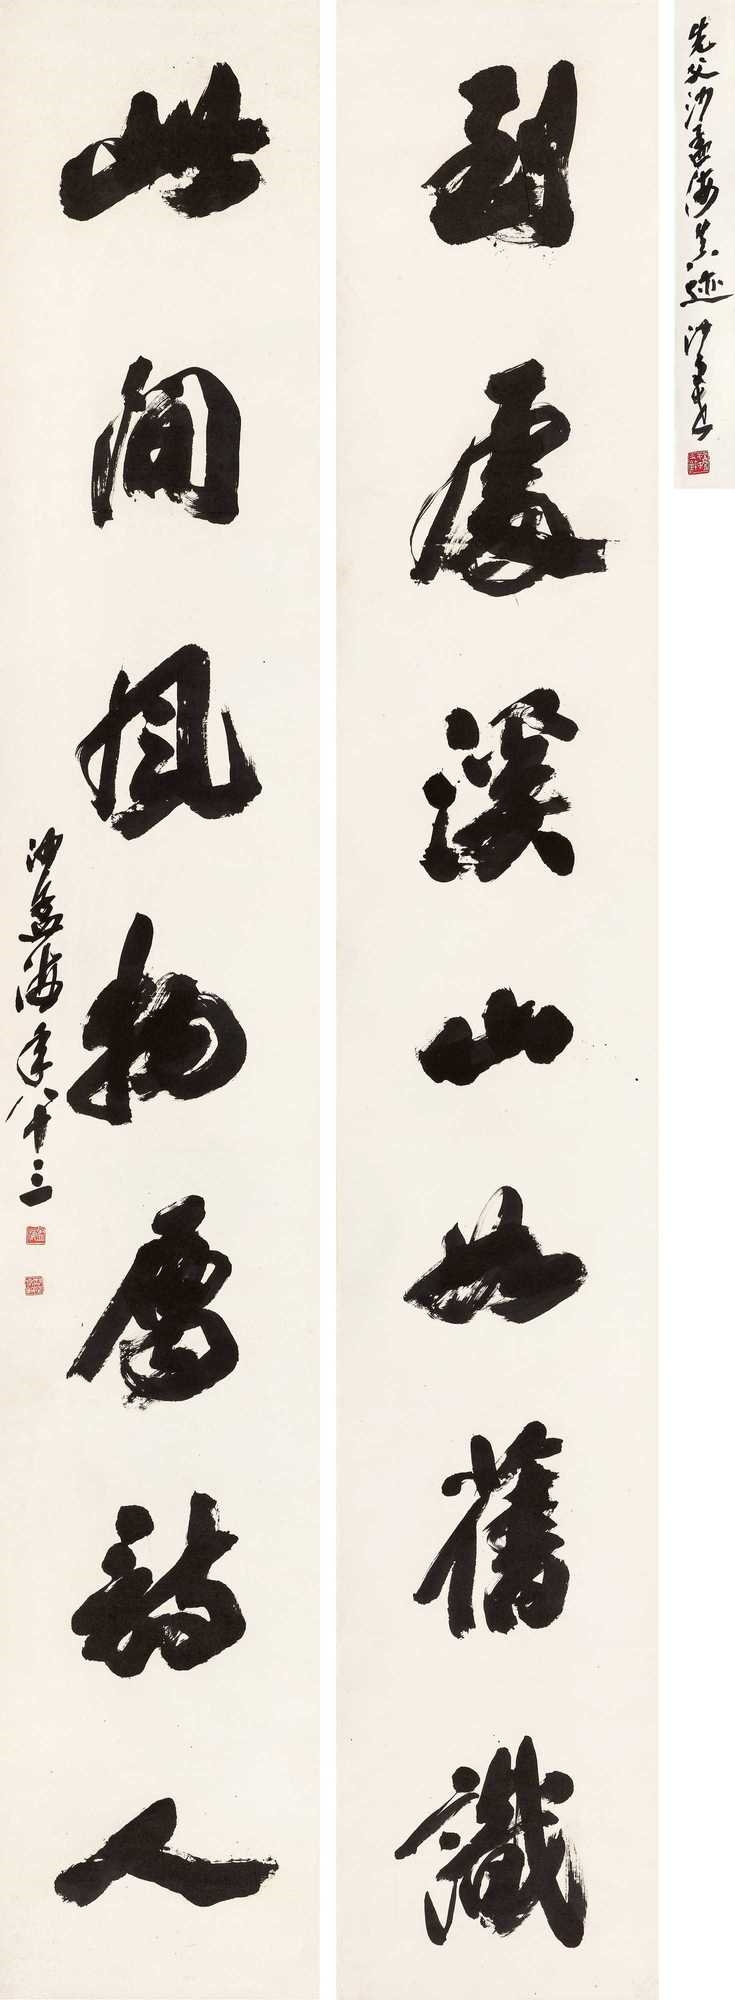 到處溪山如舊識
此間風物屬詩人
沙孟海年八十三
先父沙孟海真迹